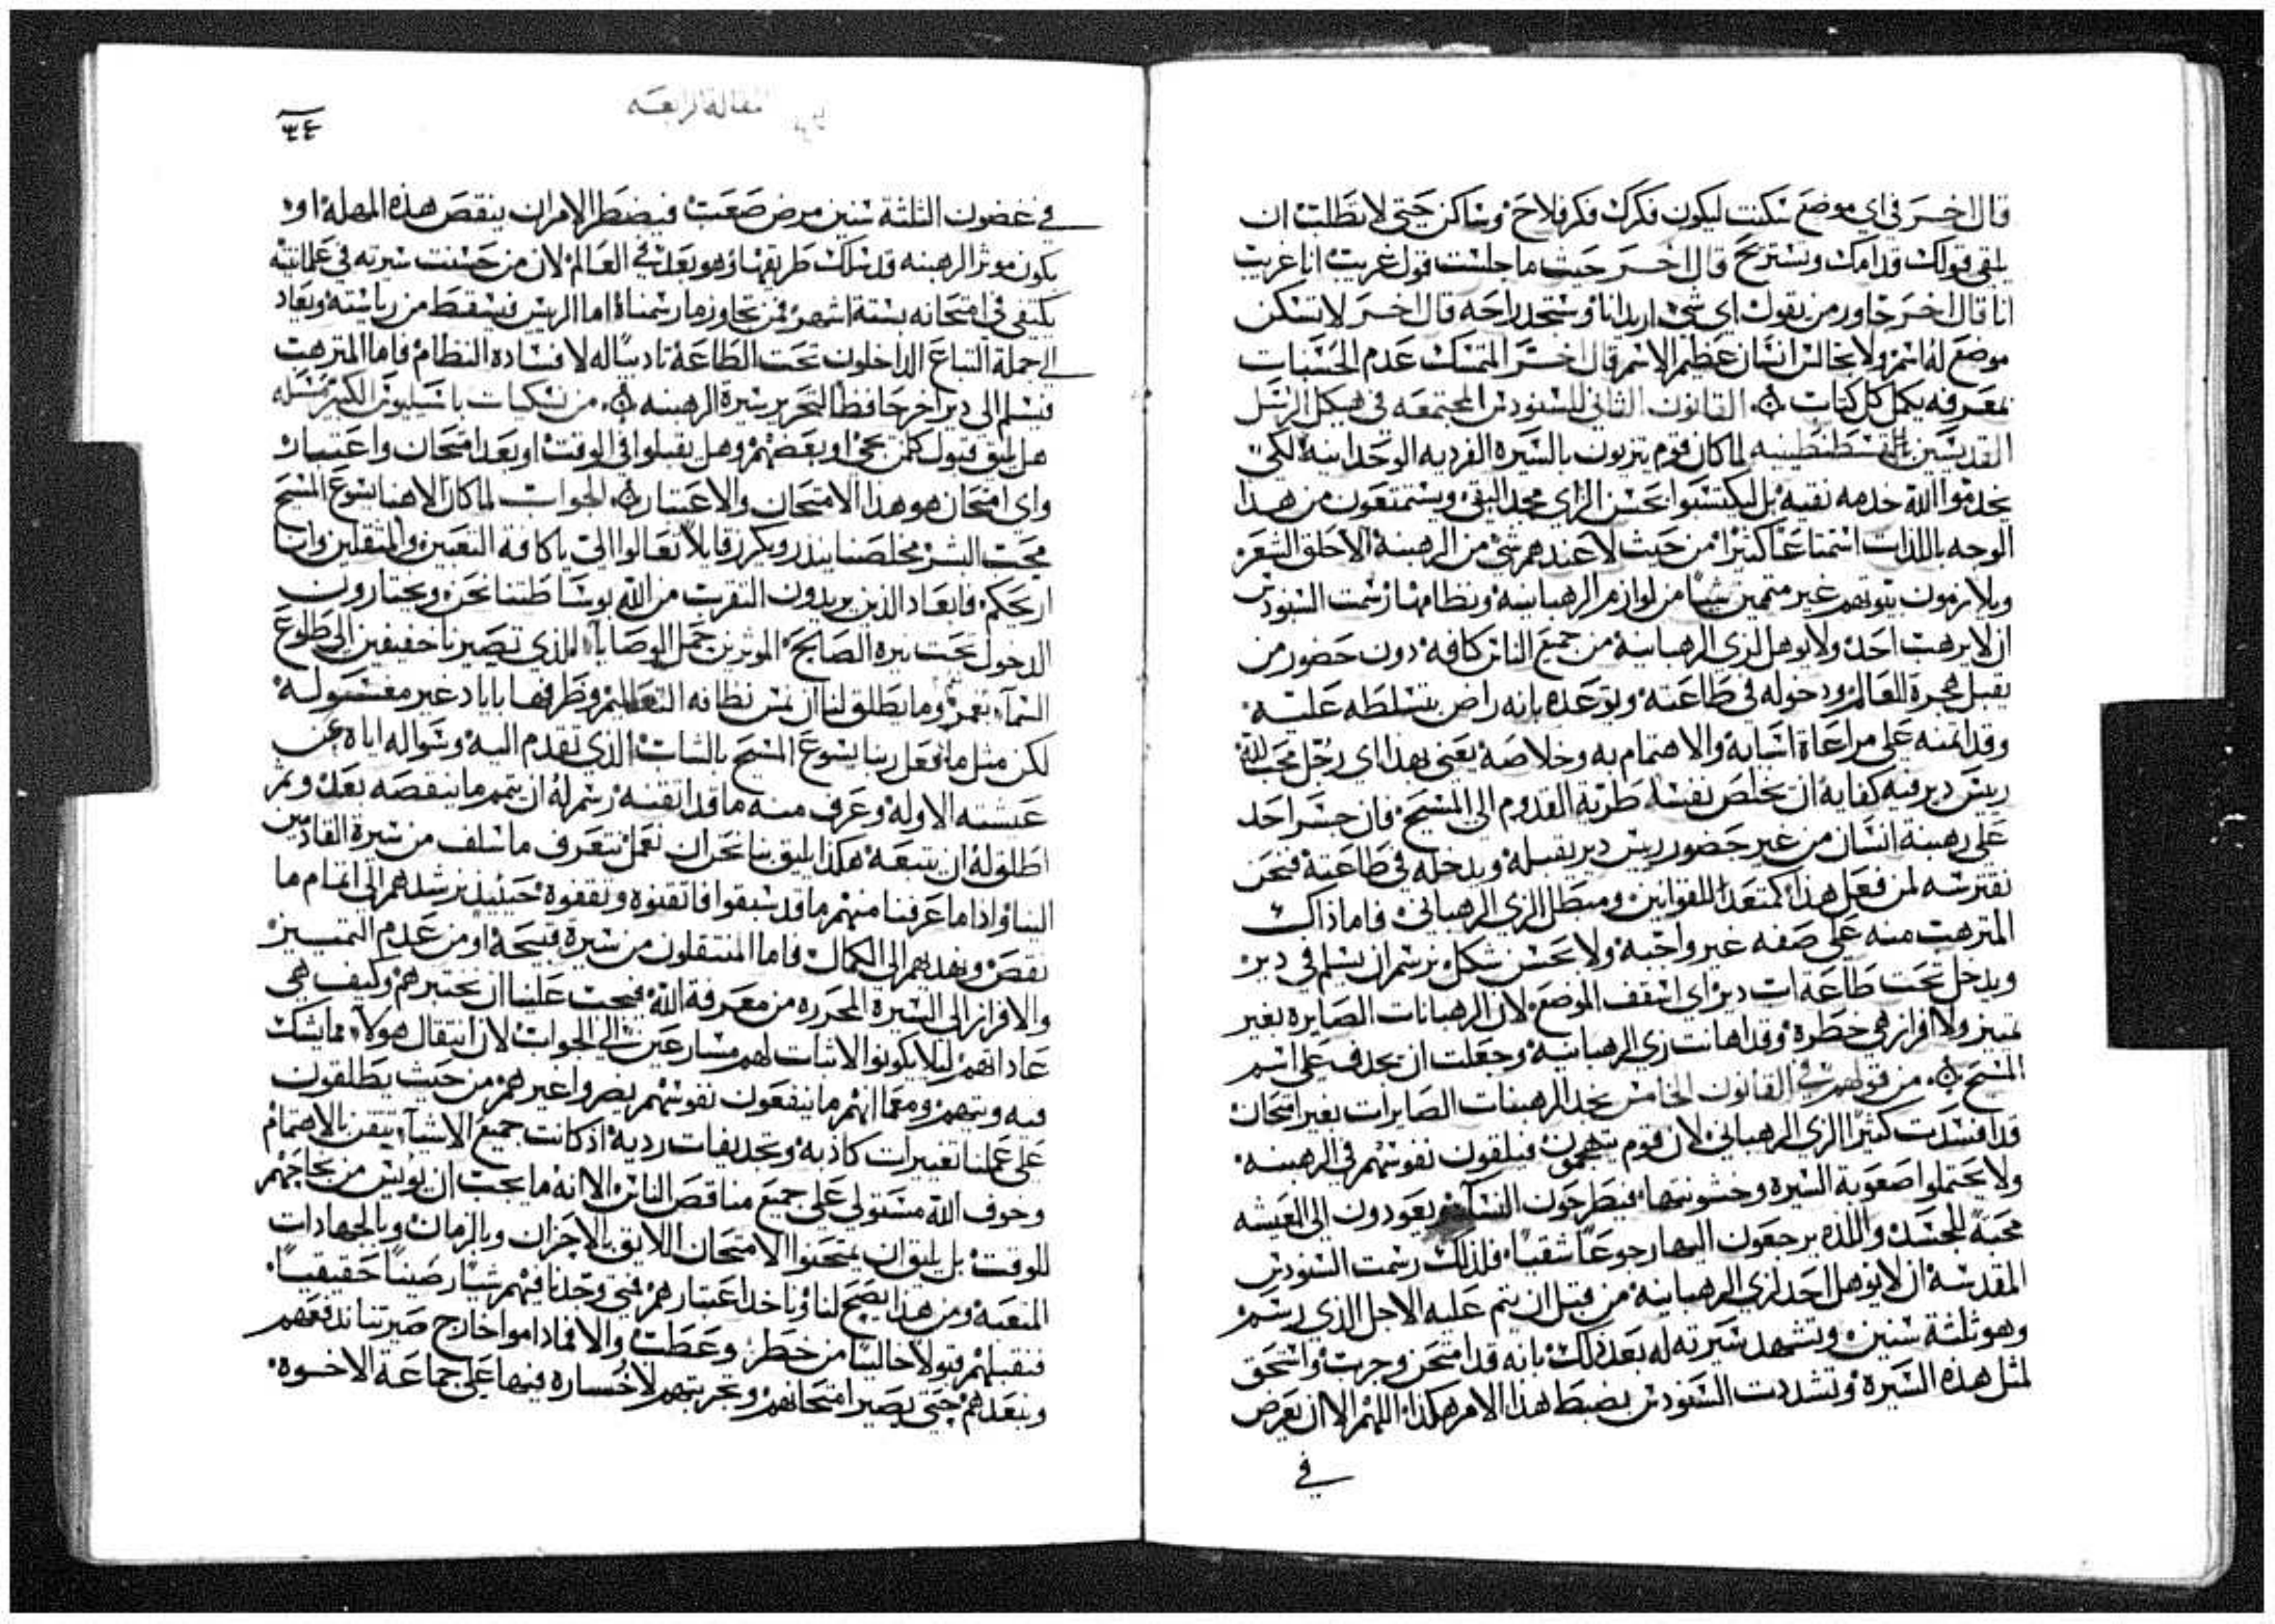 قال اخر في اي موضع سكنت ليكون فكرك فكر فلاح وساكن حتى لا تطلب ان
يلقى قولك قدامك وتستريح قال اخر حيث ما جلست قول غريب انا غريب
انا قال اخر جاور من يقول اي شي اريد انا وستجد راحه قال اخر لا تسكن
موضع له اسم ولا تجالس انسان عظيم الاسم قال اخر المتمسك عدم الحسنات
معرفه يكمل كل كتاب القانون الثاني للسنودس المجتمعه في هيكل الرسل
القديسين بالقسطنطينيه لما كان قوم يتزيون بالسيره الفرديه الوحدانيه لا لكي
يخدموا الله خدمه نقيه بل ليكتسبوا بحسن الزي مجد التقي ويستمتعون من هذا
الوجه باللذات استمتاعا كثيرا من حيث لا عندهم شي من الرهبنة الا حلق الشعر
ويلازمون بيوتهم غير متممين شيا من لوازم الرهبانيه ونظامها رسمت السنودس
ان لا يرهب احد ولا يوهل لزي الرهبانية من جميع الناس كافه دون حضور من
يقبل هجرة العالم ودخوله في طاعته ويتوعده بانه راض بتسلطه عليه
وقد ائتمنه على مراعاة اسبابه والاهتمام به وخلاصه يعني بهذا اي رجل محب لله
ريس دير فيه كفاية ان يخلص نفسا طرية القدوم الى المسيح فان جسر احد
على رهبنة انسان من غير حضور ريس دير يقبله ويدخله في طاعته فنحن
نقترسه لمن فعل هذا كمتعدا للقوانين ومبطل الزي الرهباني فاما ذاك
المترهب منه على صفه غير واجبه ولا بحسن شكل نرسم ان يسلم في دير
ويدخل تحت طاعة اب دير اي اسقف الموضع لان الرهبانات الصايره بغير
تميز ولا افراز هي خطرة وقد اهانت زي الرهبانيه وجعلت ان يجدف على اسم
المسيح من قولهم في القانون الخامس نجد الرهبنات الصايرات بغير امتحان
قد افسدت كثيرا الزي الرهباني لان قوم يتهجمون فيلقون نفوسهم في الرهبنه
ولا يحتملوا صعوبة السيره وخشونتها فيطرحون ويعودون الى العيشه
محبة للجسد واللذه يرجعون اليها رجوعا شقيا فلذلك رسمت السنودس
المقدسة ان لا يوهل احد لزي الرهبانية من قبل ان يتم عليه الاجل الذي رسم
وهو ثلثة سنين وتشهد سيرته له بعد ذلك بانه قد امتحن وجرب واستحق
لمثل هذه السيره وتشددت السنودس بضبط هذا الامر هكذا اللهم الا ان يعرض
في
المقالة الرابعه
٣٤
في غضون الثلثة سنين مرض صعب فيضطر الامر ان ينقص هذه المهله او
يكون موثر الرهبنه قد سلك طريقها وهو بعد في العالم لان من حسنت سيرته في علمانيته
يكتفي في امتحانه بستة اشهر فمن تجاوز ما رسمناه اما الريس فيسقط من رياسته ويعاد
الى جملة التباع الداخلون تحت الطاعة تاديبا له لافساده النظام فاما المترهب
فيسلم الى دير اخر حافظا لتحرير سيرة الرهبنه من نسكيات باسيليوس الكبير مسله
هل يليق قبول كمن يجي او بعضهم وهل يقبلوا في الوقت او بعد امتحان واعتبار
واي امتحان هو هذا الامتحان والاعتبار الجواب لما كان الاهنا يسوع المسيح
محب البشر مخلصنا ينذر ويكرز قايلا تعالوا الي يا كافة التعبين والمثقلين وانا
اريحكم فابعاد الذين يريدون التقرب من الله بوساطتنا نحن ويختارون
الدخول تحت نيره الصالح الموثرين حمل الوصايا الذي تصيرنا خفيفين الى طلوع
السما نعم وما يطلق لنا ان نمس نظافه التعاليم وظرفها باياد غير مغسوله
لكن مثل ما فعل ربنا يسوع المسيح بالشاب الذي تقدم اليه وسواله اياه عن
عيشته الاوله وعرف منه ما قد اتقنه رسم له ان يتمم ما ينقصه بعد وثم
اطلق له ان يتبعه هكذا يليق بنا نحن ان نعمل نتعرف ما سلف من سيرة القادمين
الينا واذا ما عرفنا منهم ما قد سبقوا فاتقنوه وثقفوه حينيذ نرشدهم الى اتمام ما
نقص ونهديهم الى الكمال فاما المنتقلون من سيرة قبيحة او من عدم التمييز
والافراز الى السيرة المحرره من معرفة الله فيجب علينا ان نختبرهم وكيف هي
عاداتهم ليلا يكونوا لا ثبات لهم مسارعين الى الجواب لان انتقال هولاء مما يشك
فيه ويتهم ومع انهم ما ينفعون نفوسهم يضروا غيرهم من حيث يطلقون
على عملنا تعييرات كاذبه وتجديفات رديه اذ كانت جميع الاشياء تتقن بالاهتمام
وخوف الله مستولي على جميع مناقص الناس الا انه ما يجب ان يويس من نجاحهم
للوقت بل يليق ان يمتحنوا الامتحان اللايق بالاحزان وبالزمان وبالجهادات
المتعبة ومن هذا يصح لنا وناخذ اعتبارهم فمتى وجدنا فيهم شيا رصينا حقيقيا
فنقبلهم قبولا خاليا من خطر وعطب والا فماداموا خارج صيرتنا ندفعهم
ونبعدهم حتى يصير امتحانهم وتجربتهم لا خسارة فيها على جماعة الاخوه